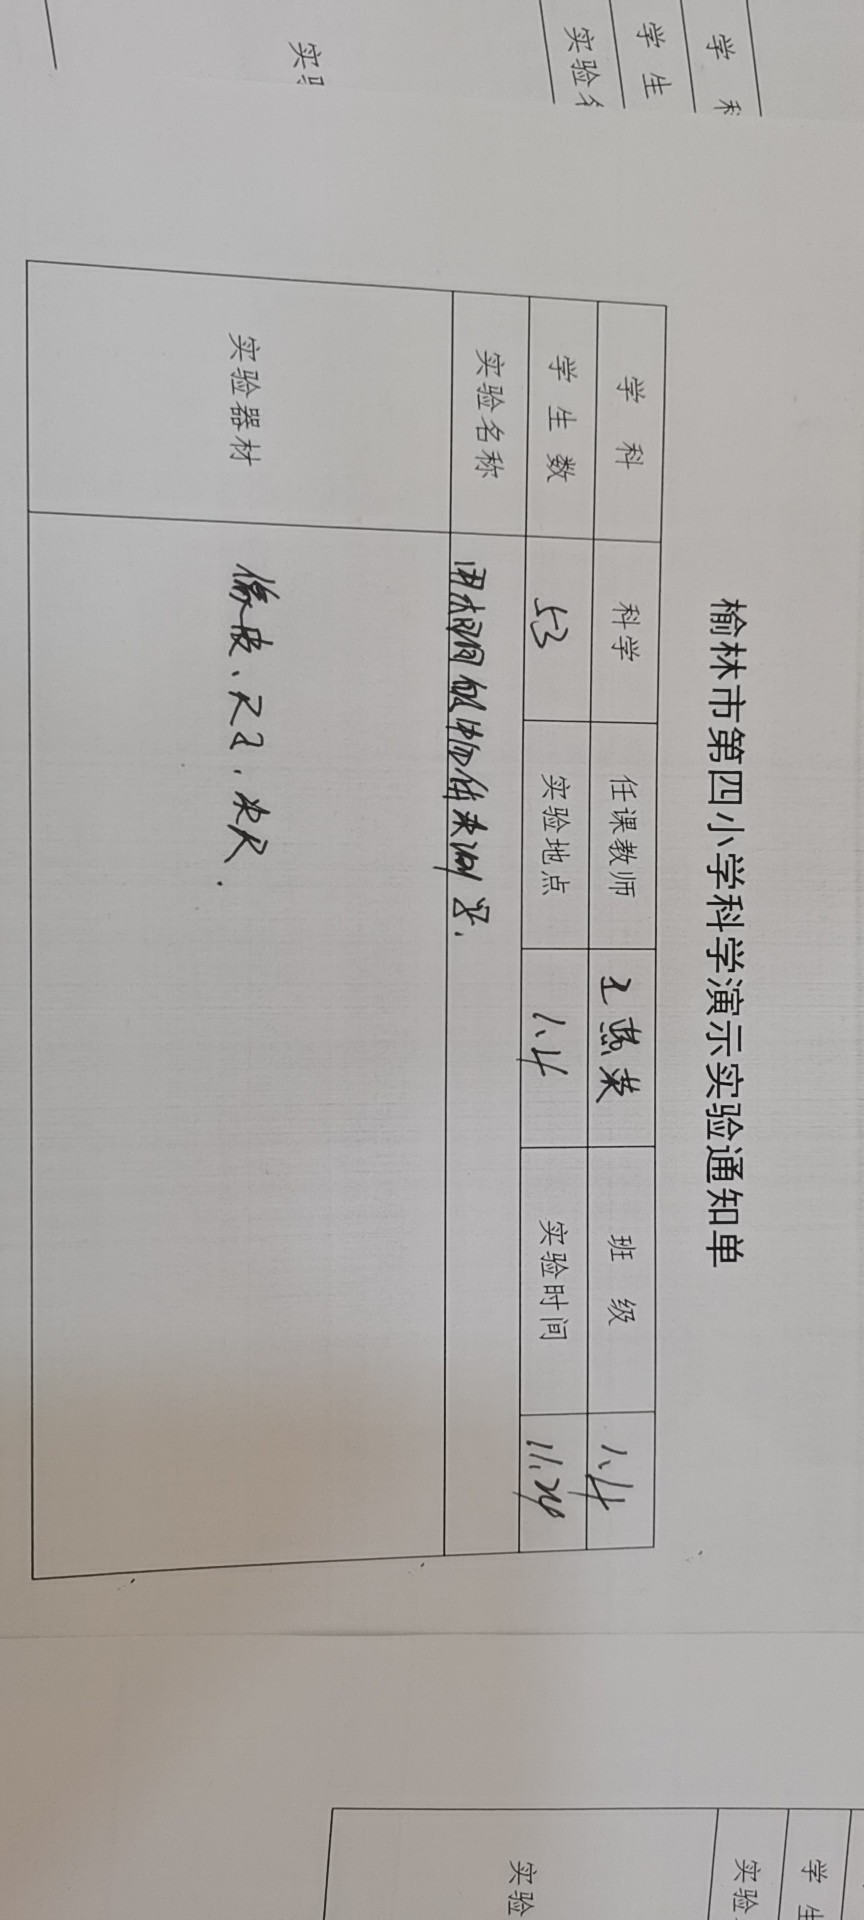 学 科
学 生
实验名
实验
榆林市第四小学科学演示实验通知单
学 科 科学 任课教师 王燕荣 班 级 1.4
学 生 数 53 实验地点 1.4 实验时间 11.24
实验名称 用相同的物体来测量.
实验器材 像皮、尺子、米尺.
学 生
实验
实验